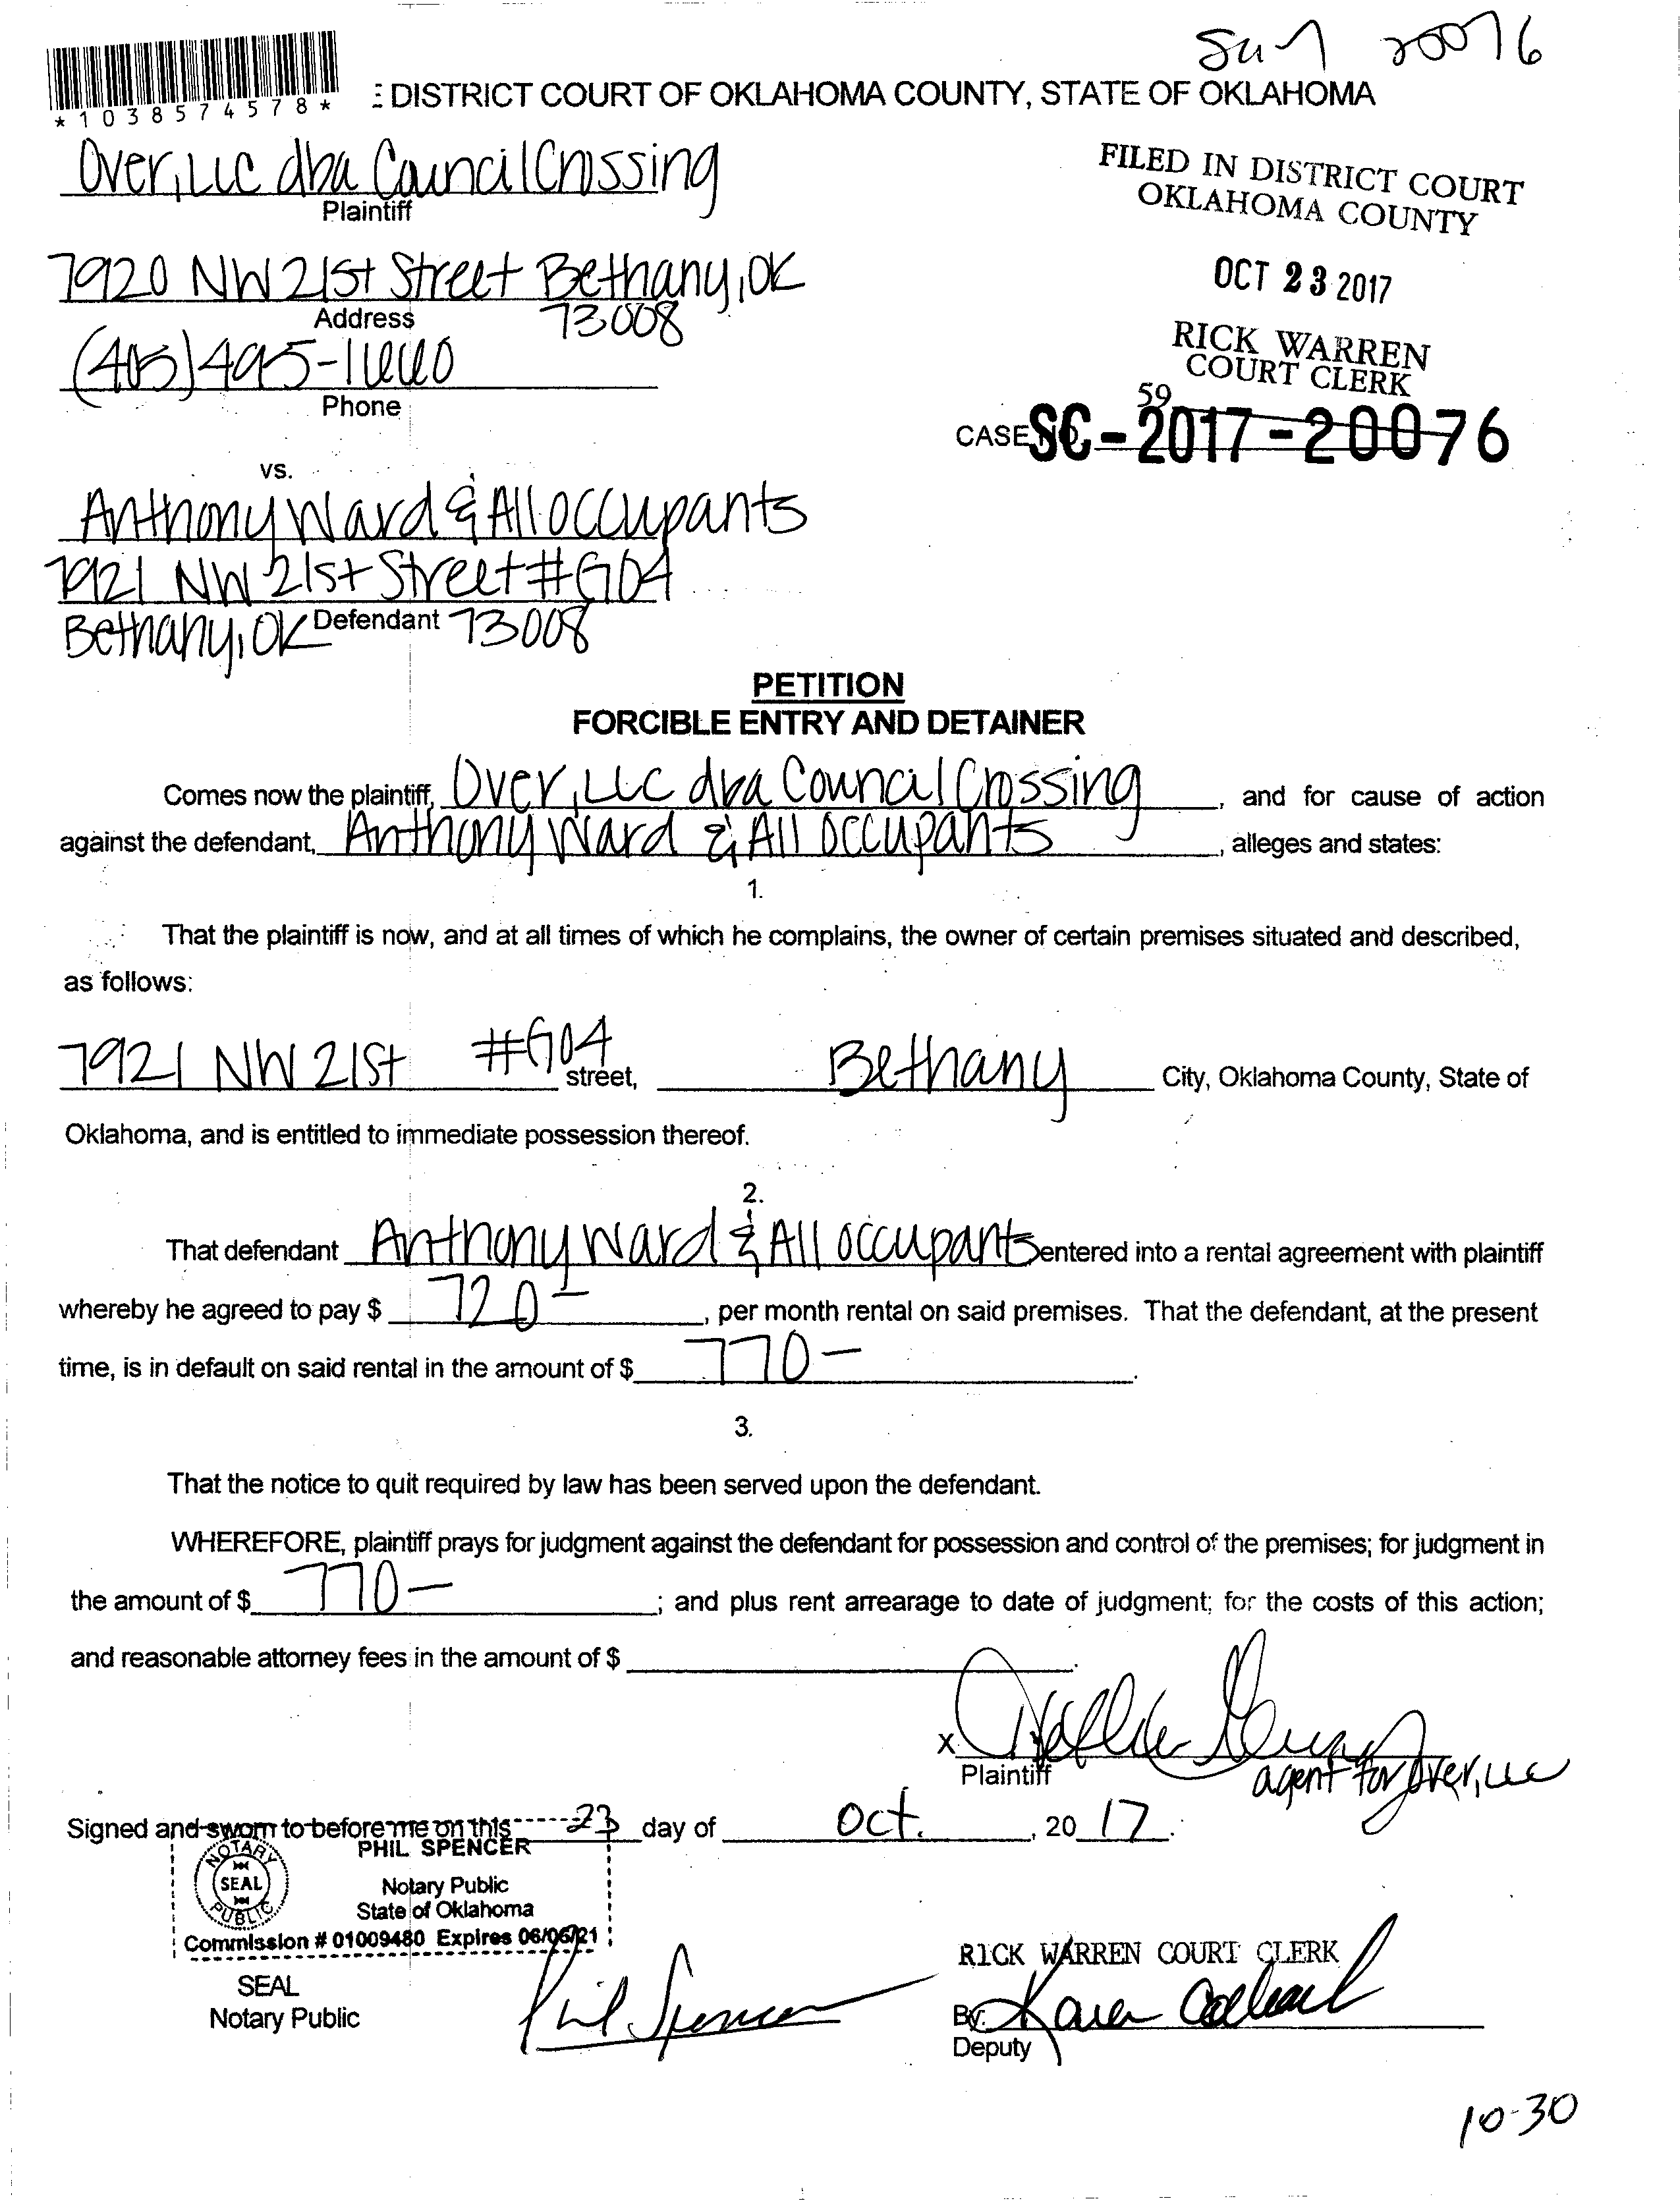 20076
*1038574578*
DISTRICT COURT OF OKLAHOMA COUNTY, STATE OF OKLAHOMA
Over, LLC dba Council Crossing
Plaintiff
FILED IN DISTRICT COURT
OKLAHOMA COUNTY
7920 NW 21st Street Bethany, OK
73008
Address
OCT 23 2017
(405) 495-1660
Phone
RICK WARREN
COURT CLERK
59
CASE NO. SC-2017-20076
vs.
Anthony Ward & All occupants
7921 NW 21st Street #G04
Bethany, OK Defendant 73008
PETITION
FORCIBLE ENTRY AND DETAINER
Comes now the plaintiff, Over, LLC dba Council Crossing, and for cause of action
against the defendant, Anthony Ward & All Occupants, alleges and states:
1.
That the plaintiff is now, and at all times of which he complains, the owner of certain premises situated and described,
as follows:
7921 NW 21st #G04 street, Bethany City, Oklahoma County, State of
Oklahoma, and is entitled to immediate possession thereof.
2.
That defendant Anthony Ward & All occupants entered into a rental agreement with plaintiff
whereby he agreed to pay $ 720-, per month rental on said premises. That the defendant, at the present
time, is in default on said rental in the amount of $ 770-.
3.
That the notice to quit required by law has been served upon the defendant.
WHEREFORE, plaintiff prays for judgment against the defendant for possession and control of the premises; for judgment in
the amount of $ 770-; and plus rent arrearage to date of judgment; for the costs of this action;
and reasonable attorney fees in the amount of $
X
Plaintiff
agent for Over, LLC
Signed and sworn to before me on this 23 day of Oct., 2017.
PHIL SPENCER
NOTARY
SEAL
PUBLIC
Notary Public
State of Oklahoma
Commission # 01009480 Expires 06/06/21
SEAL
Notary Public
Phil Spencer
RICK WARREN COURT CLERK
By: Karen
Deputy
10-30